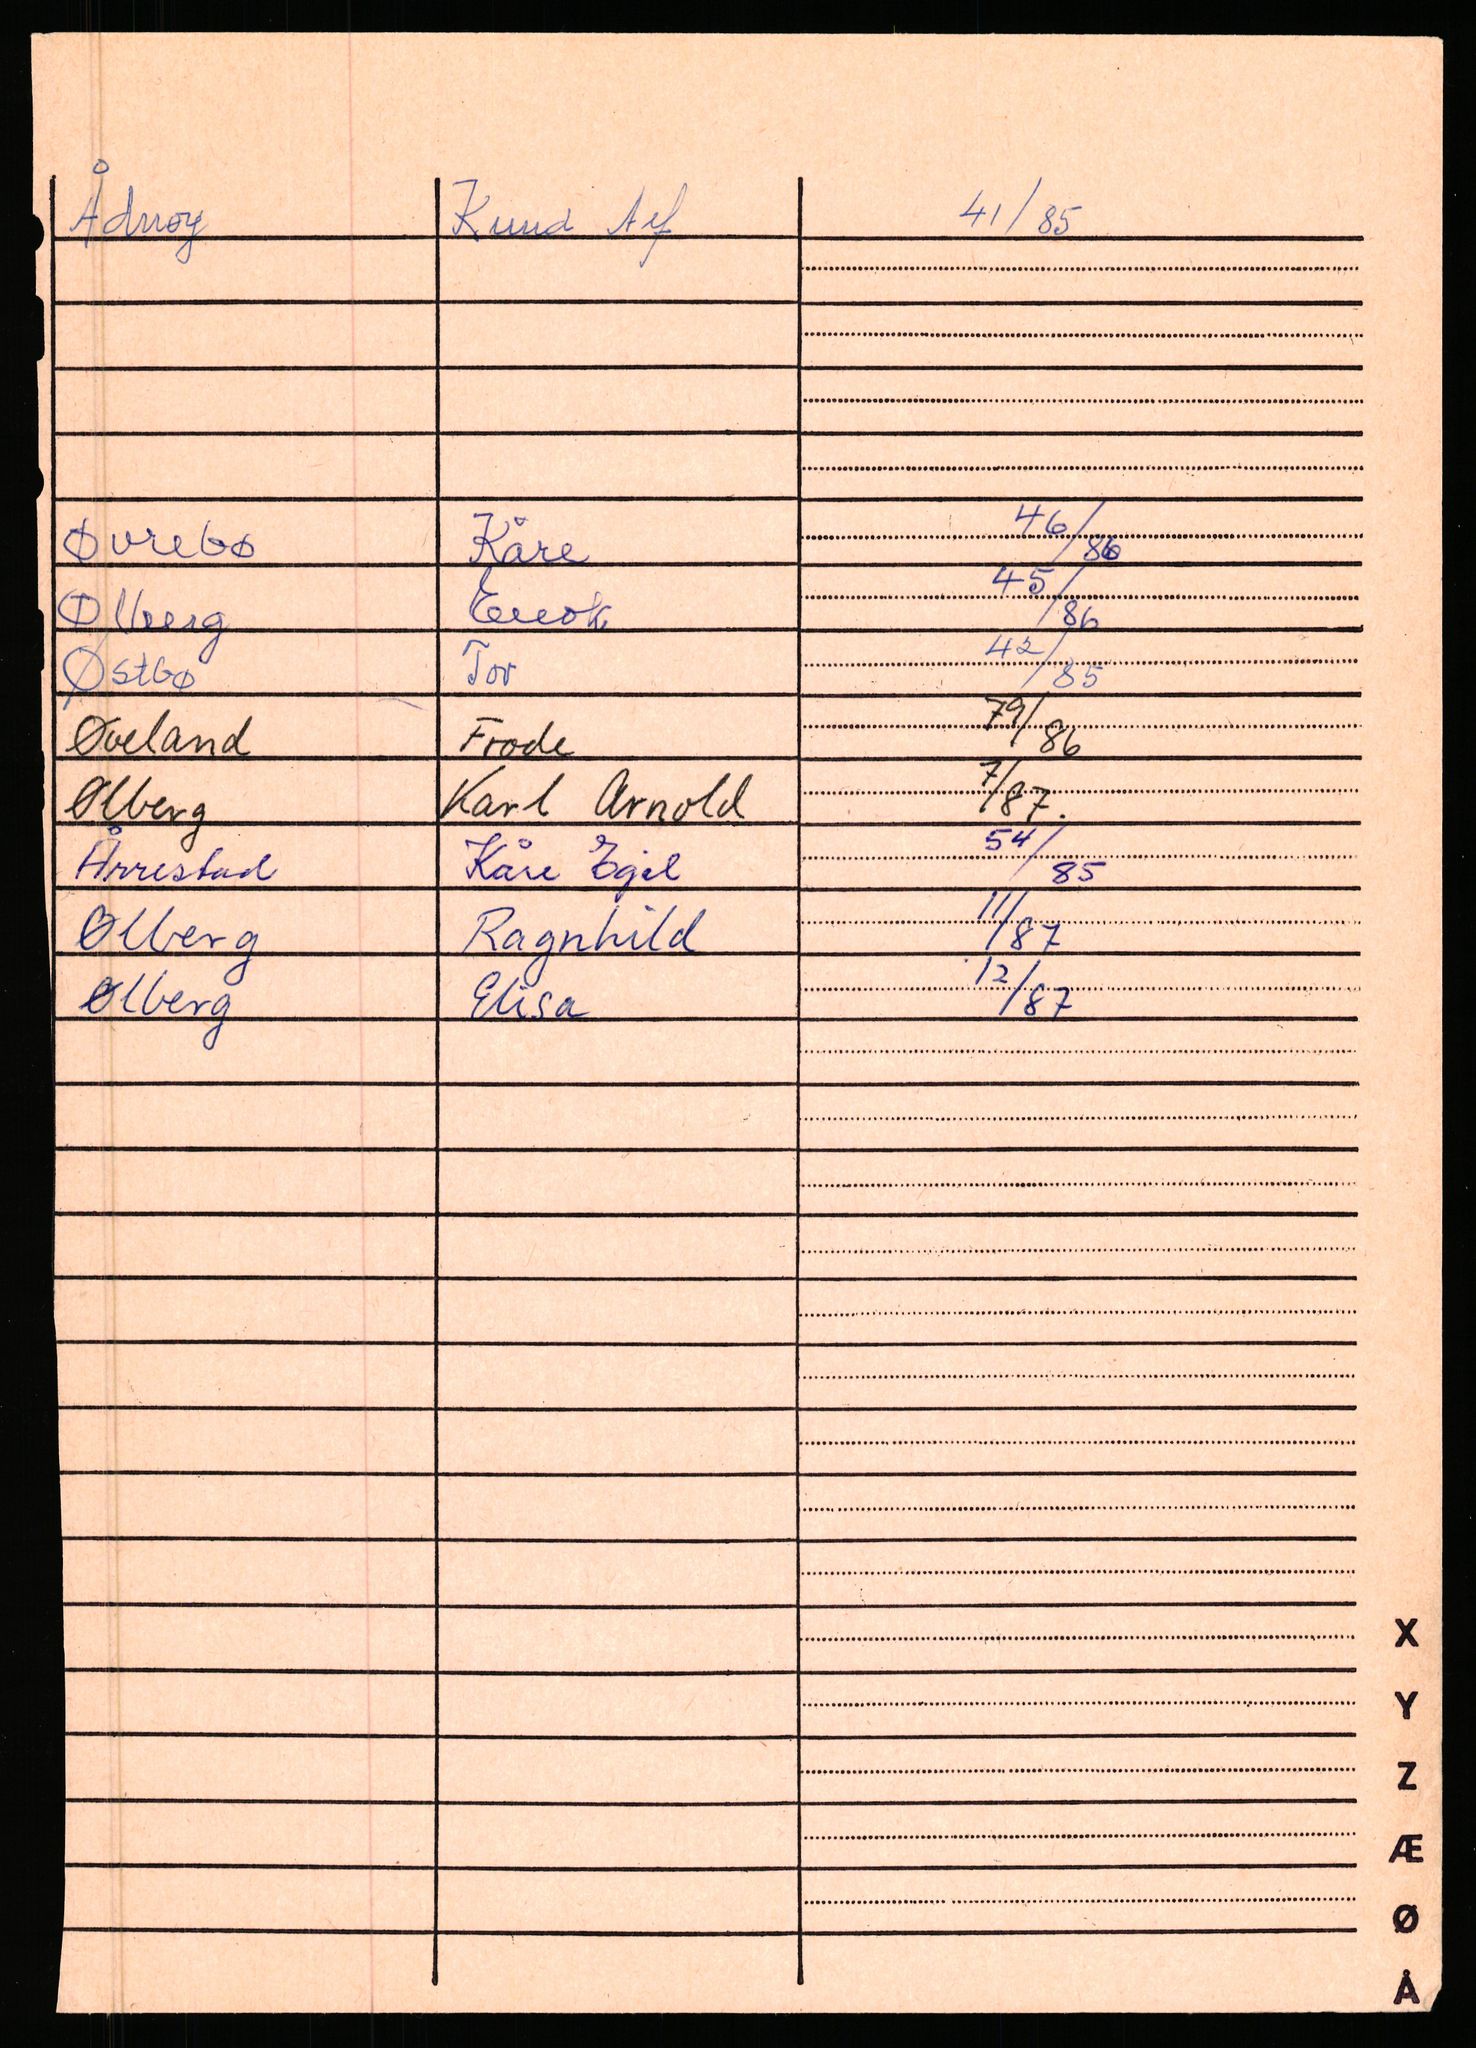 Ådnøy Knud Alf 41/85
Øvrebø Kåre 46/86
Ølberg Enok 45/86
Østbø Tor 42/85
Øveland Frode 79/86
Ølberg Karl Arnold 7/87.
Årrestad Kåre Egil 54/85
Ølberg Ragnhild 11/87
Ølberg Elisa 12/87
X
Y
Z
Æ
Ø
Å